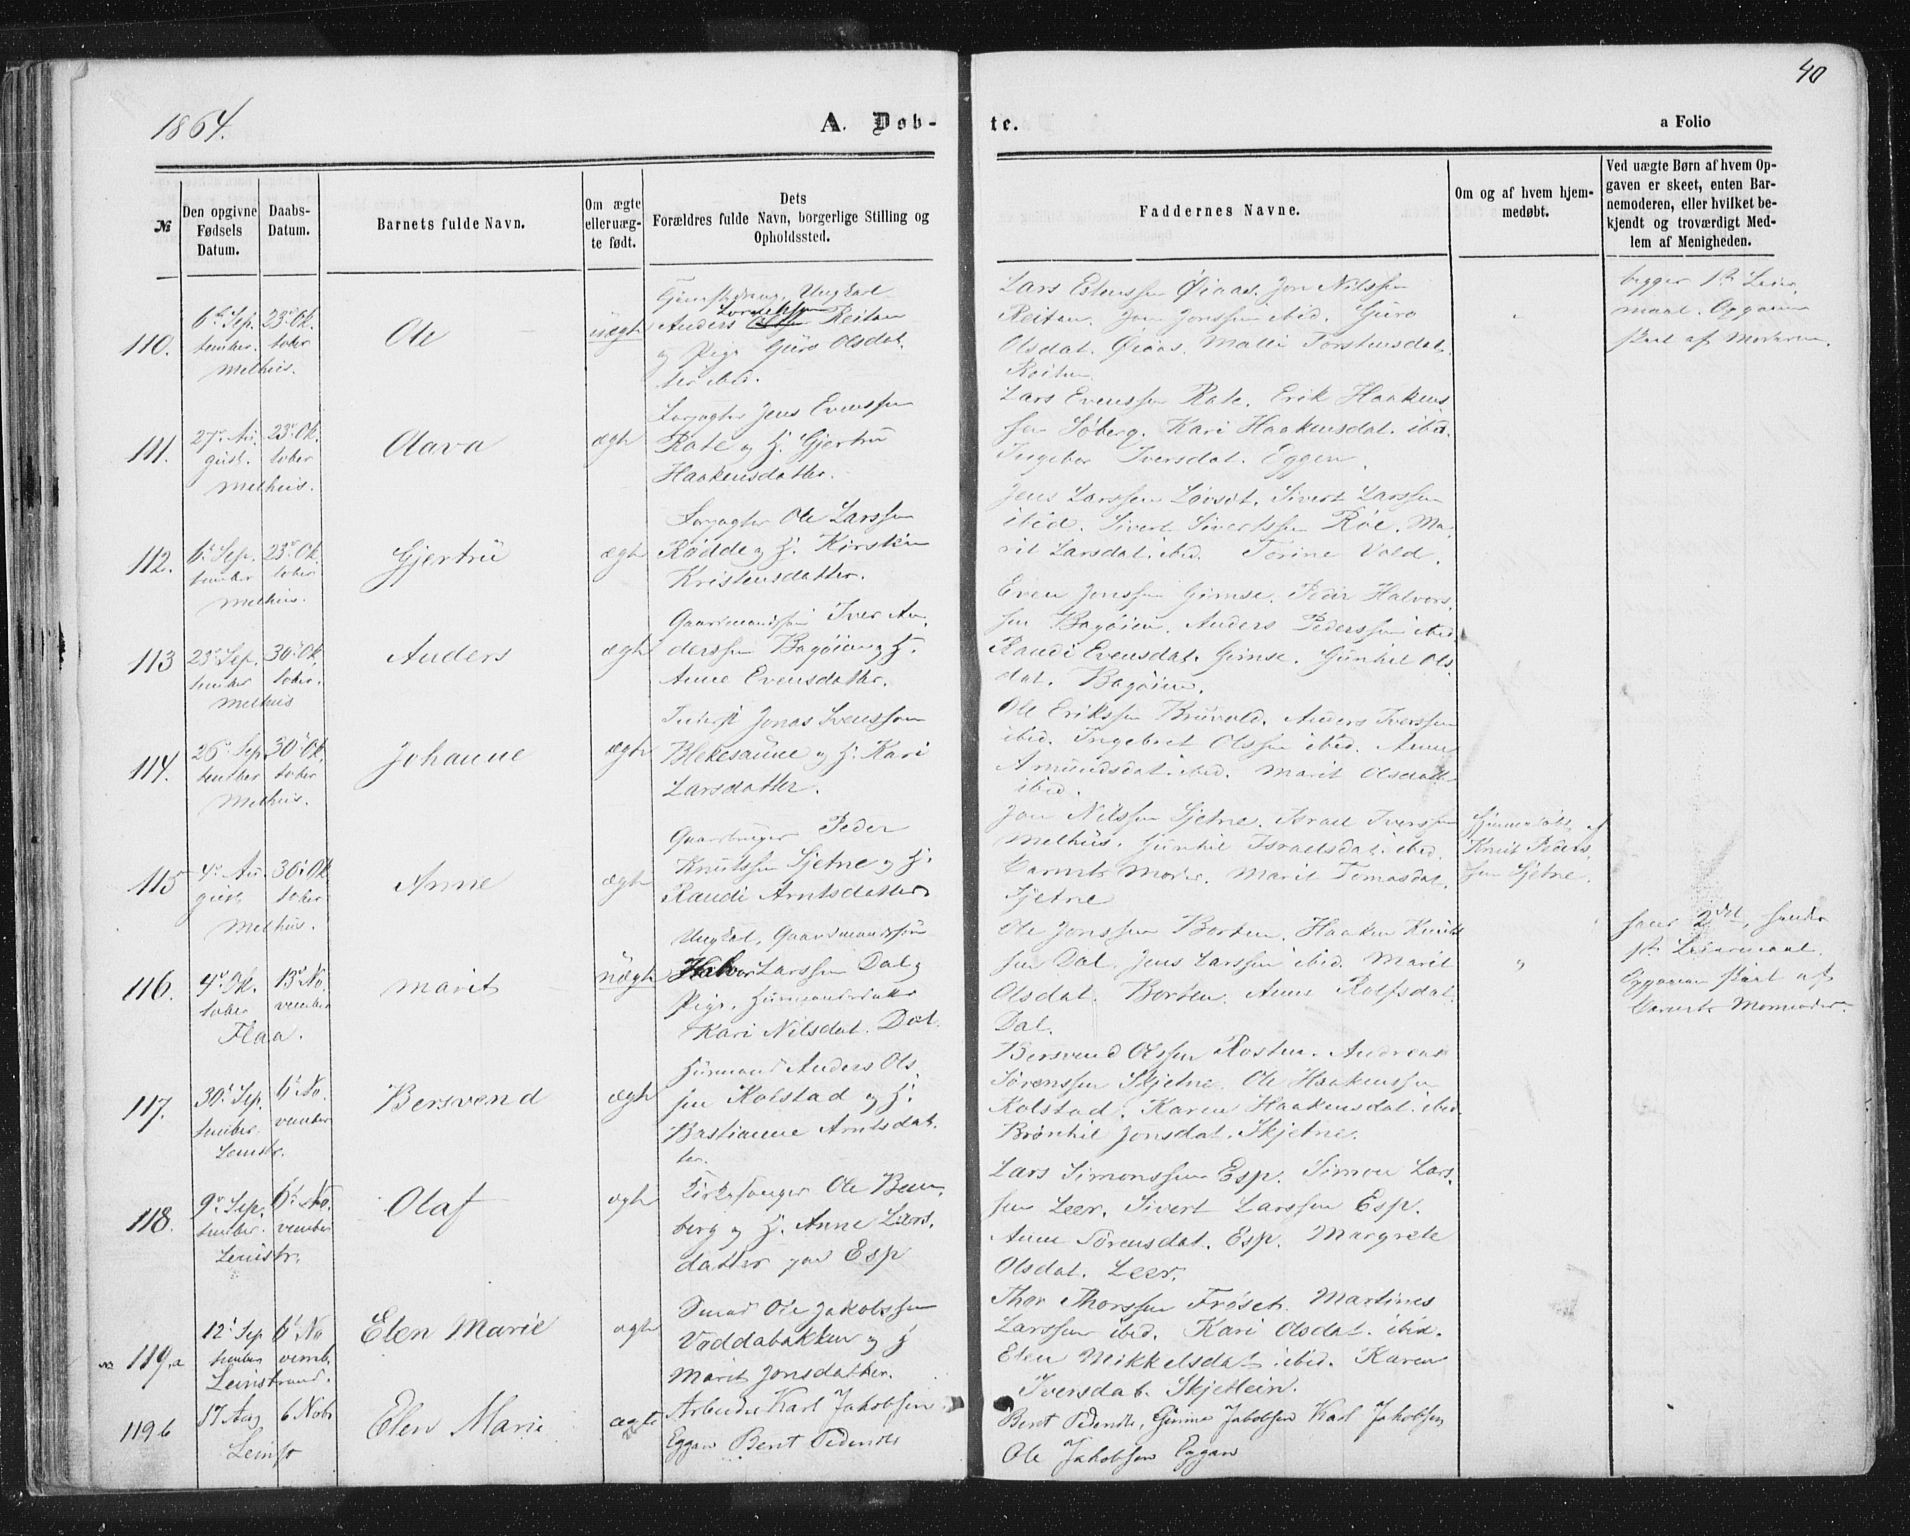 40
1864.
A. Døb-
te.
a Folio
№
Den opgivne Fødsels Datum.
Daabs-Datum.
Barnets fulde Navn.
Om ægte eller uæg-te født.
Dets Forældres fulde Navn, borgerlige Stilling og Opholdssted.
Faddernes Navne.
Om og af hvem hjem-medøbt.
Ved uægte Børn af hvem Op-gaven er skeet, enten Bar-nemoderen, eller hvilket be-kjendt og troværdigt Med-lem af Menigheden.
110.
6te Sep. 23de Ok.
tember. tober
Melhus.
Ole
uægte
Ungkarl
Anders Reitan
og Pige Guro Olsdat.
ter ibid.
Lars Estenssen Øiaas. Jon Nilssen
Reitan. Jon Jonssen ibid. Guro
Olsdat. Øiaas. Malli Torstensdat.
Reitan.
begges 1ste Leier
maal. Opgaven
skeet af Moderen.
111.
27de Au 23de Ok.
gust. tober
Melhus.
Olava
ægte
Jens Evenssen
Rate og H. Gjertru
Haakensdatter.
Lars Evenssen Rate. Erik Haakens
sen Søberg. Kari Haakensdat. ibid.
Ingebor Iversdat. Eggen.
112.
6te Sep. 23de Ok.
tember tober
Melhus.
Gjertru
ægte
Ole Larssen
Rødde og H. Kirsten
Kristensdatter.
Jens Larssen Løvset. Sivert Larssen
ibid. Sivert Sivertssen Røe. Ma-
rit Larsdat. ibid. Torine Vold.
113
Sep. 30te Ok.
tember tober.
Melhus
Anders
ægte
Gaardmandssøn Iver An
derssen Bagøien og H.
Anne Evensdatter.
Even Jonssen Gimse. Peder Halvors
sen Bagøien. Anders Pederssen ibid
Randi Evensdat. Gimse. Gunhil Ols
dat. Bagøien.
114.
26de Sep 30te Ok.
tember tober
Melhus.
Johanne
ægte
Inderst Jonas Svenssen
Blekesaune og H. Kari
Larsdatter.
Ole Erikssen Bruvold. Anders Iverssen
ibid. Ingebret Olssen ibid. Anne
Amundsdat. ibid. Marit Olsdatter
ibid.
115
4de Au 30te Ok
gust tober
Melhus.
Anne
ægte
Gaardbruger Peder
Knutssen Gjetne og H.
Randi Arntsdatter
Jon Nilssen Gjetne. Israel Iverssen
Melhus. Gunhil Israelsdat. ibid.
Barnets Moder. Marit Tomasdat.
Gjetne
Hjemmedøbt af
Knut Peders
sen Gjetne.
116.
4de Ok. 13de No.
tober vember
Flaa.
Marit
uægte
Ungkarl, Gaardmandssøn
Halvor Larssen Dal og
Pige, Husmandsdatter
Kari Nilsdat. Dal.
Ole Jonssen Borten. Haaken Knut
sen Dal. Jens Larssen ibid. Marit
Olsdat. Borten. Anne Rolfsdat.
Dal.
hans 2det, hendes
1ste Leiermaal.
Opgaven skeet af
Barnets Mormoder.
117.
30te Sep. 6te No.
tember vember
Leinstr.
Bersvend
ægte
Husmand Anders Ols
sen Kolstad og H.
Bastianne Arntsdat.
ter.
Bersvend Olssen Rosten. Andreas
Sørenssen Skjetne. Ole Haakenssen
Kolstad. Karen Haakensdat. ibid
Brønhil Jonsdat. Skjetne.
118.
9de Sep. 6te No.
tember. vember
Leinstr.
Olaf
ægte
Kirkesanger Ole Benn
berg og H. Anne Lars.
datter paa Esp
Lars Simonssen Esp. Simon Lars
sen Leer. Sivert Larssen Esp.
Anne Sørensdat. Esp. Margrete
Olsdat. Leer.
119.a
12te Sep 6te No
tember vemb.
Leinstrand.
Elen Marie
ægte
Smed Ole Jakobssen
Vaddabakken og H
Marit Jonsdatter.
Thor Thorssen Frøset. Martines
Larssen ibid. Kari Olsdat. ibid.
Elen Mikkelsdat. ibid. Karen
Iversdat. Skjetlein.
119b
17 Aug 6 Nobr
Leinst
Elen Marie
ægte
Arbeider Karl Jakobsen
Eggan Berit Pedersdtr
Berit Pedersdtr, Jakobsen Karl Jakobsen
Ole Jakobsen Eggan